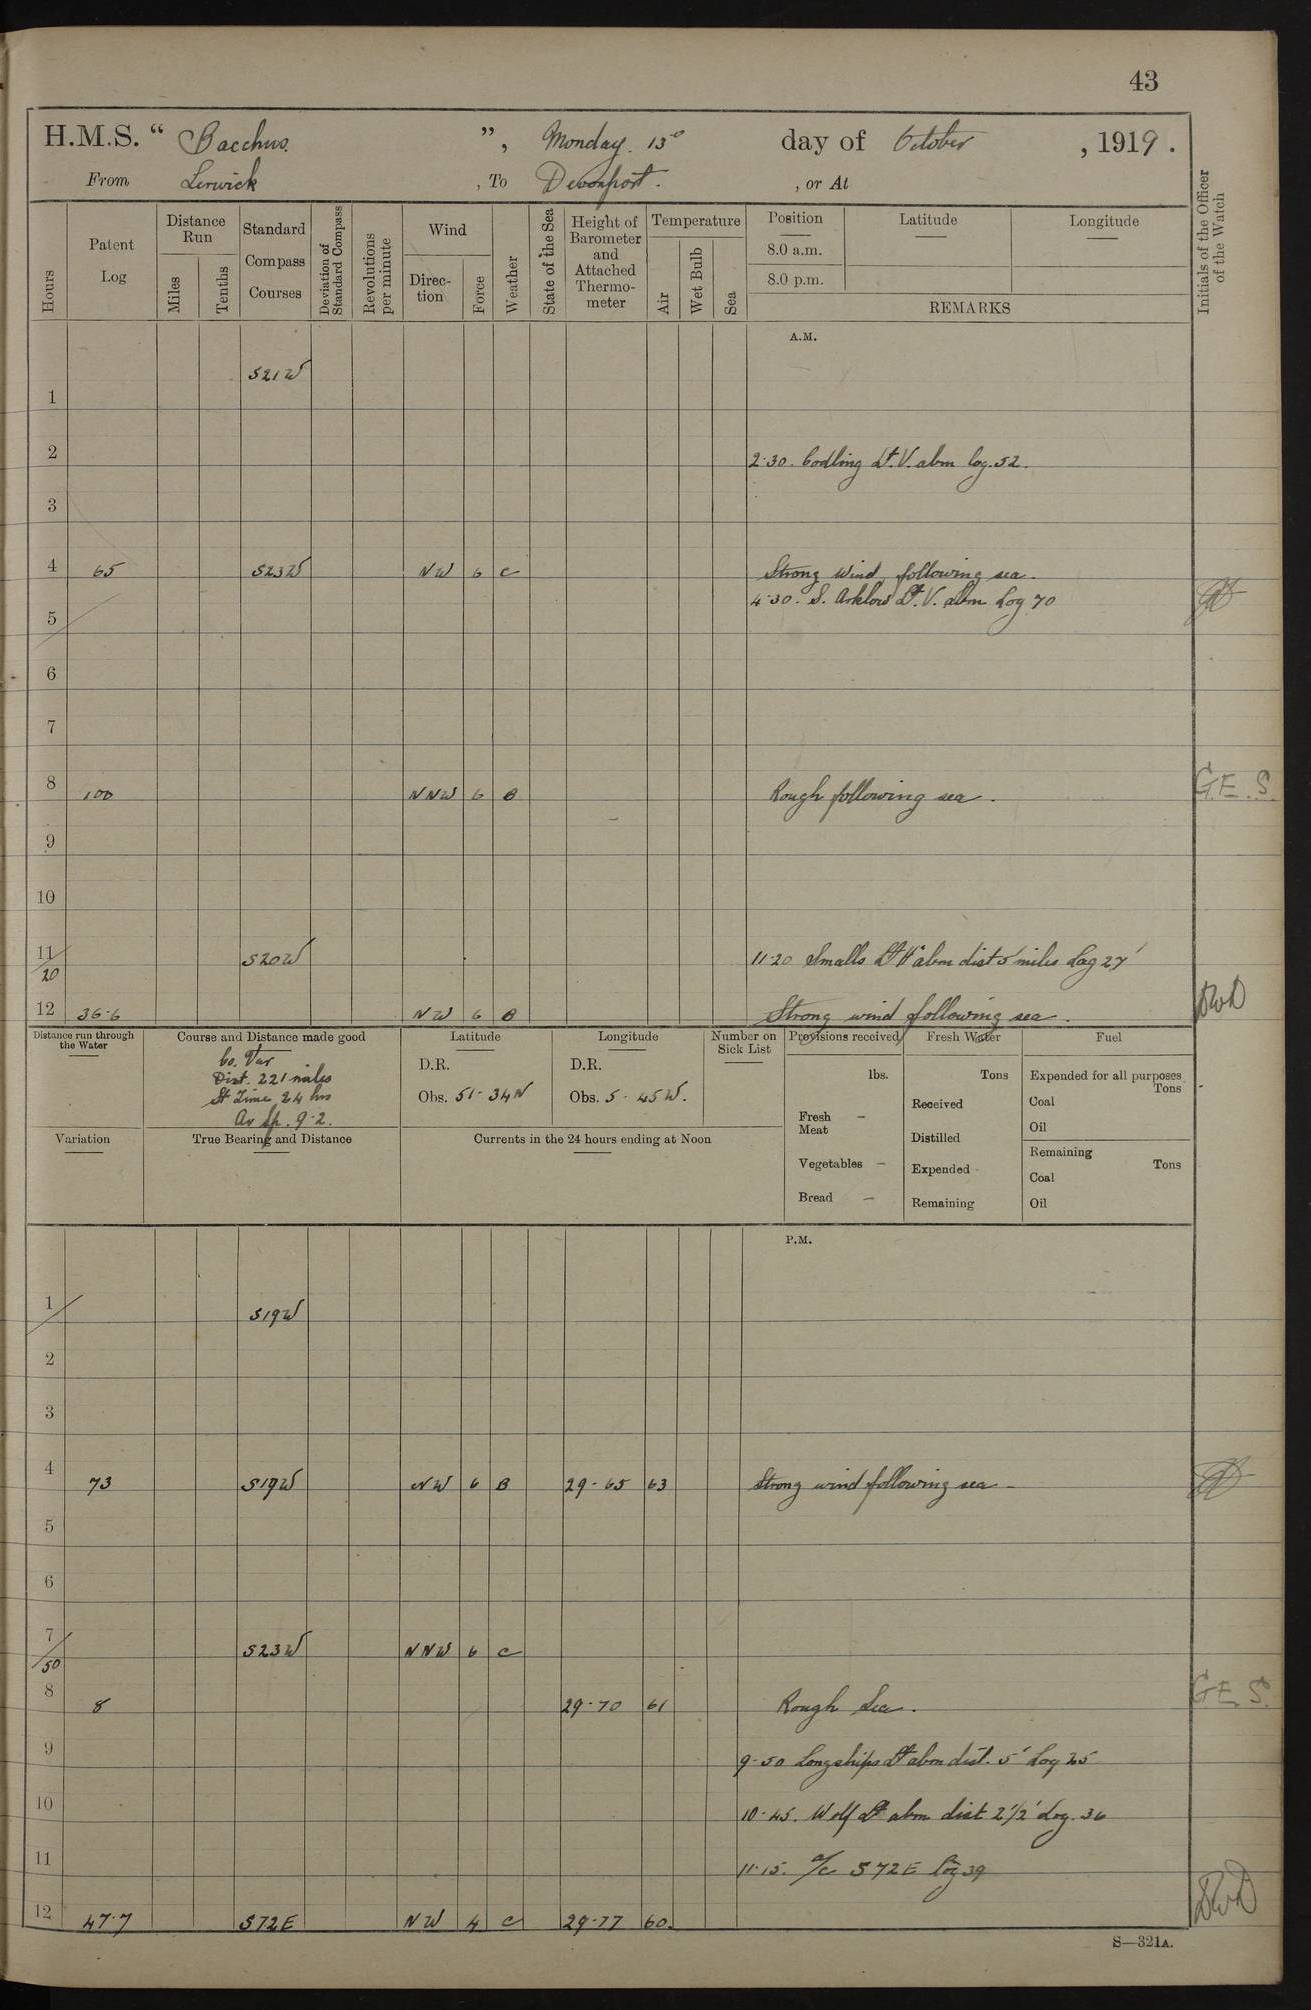 43
H.M.S. “ Bacchus. ”, Monday. 13° day of October, 1919.
From Lerwick, To Devonport., or At
Hours
Patent Log
Distance Run
Miles
Tenths
Standard Compass Courses
Deviation of Standard Compass
Revolutions per minute
Wind
Direction
Force
Weather
State of the Sea
Height of Barometer and Attached Thermometer
Temperature
Air
Wet Bulb
Sea
Position
8.0 a.m.
8.0 p.m.
Latitude
Longitude
REMARKS
Initials of the Officer of the Watch
A.M.
S21W
1
2 2·30. Codling Lt. V. abm log. 52.
3
4 65 S23W NW 6 C Strong Wind, following sea.
4·30. S. Arklow Lt. V. abm Log 70
5
6
7
8 100 NNW 6 B Rough following sea. G.E.S.
9
10
11/20 S20W 11·20 Smalls Lt H abm dist 5 miles Log 27'
12 36·6 NW 6 B Strong wind following sea. DWD
Distance run through the Water
Course and Distance made good
Co. Var
Dist. 221 miles
St Time 24 hrs
Av Sp. 9·2.
Latitude
D.R.
Obs. 51·34N
Longitude
D.R.
Obs. 5·45W.
Number on Sick List
Provisions received
lbs.
Fresh Meat –
Vegetables –
Bread –
Fresh Water
Tons
Received
Distilled
Expended
Remaining
Fuel
Expended for all purposes
Tons
Coal
Oil
Remaining
Tons
Coal
Oil
Variation
True Bearing and Distance
Currents in the 24 hours ending at Noon
P.M.
1 S19W
2
3
4 73 S19W NW 6 B 29·65 63 Strong wind following sea –
5
6
7/50 S23W NNW 6 C
8 8 29·70 61 Rough Sea. G.E.S.
9 9·50 Longships Lt abm dist. 5' Log 25
10 10·45. Wolf Lt abm dist 2½' Log. 36
11 11·15. a/c S72E Log 39
12 47·7 S72E NW 4 C 29·77 60. DWD
S—321A.